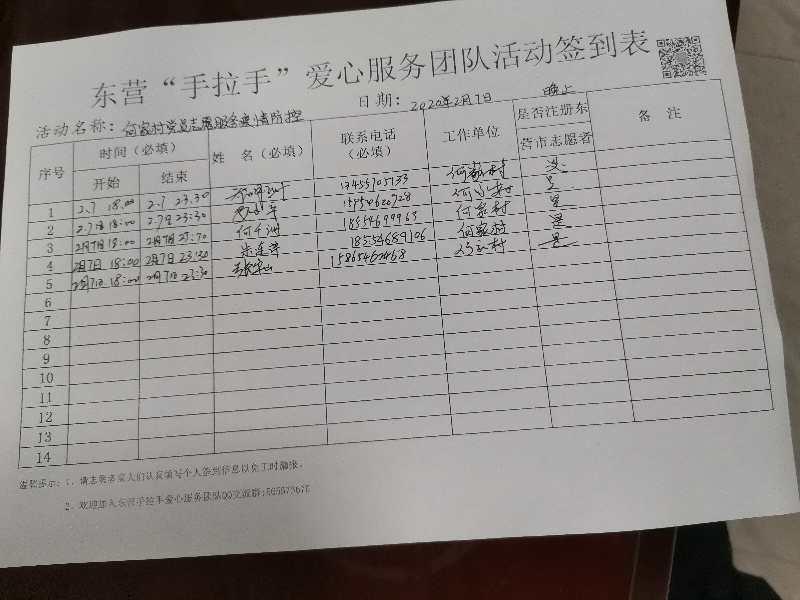 东营“手拉手”爱心服务团队活动签到表
活动名称：何家村党员志愿服务疫情防控 日期：2020年2月7日 晚上
序号 时间（必填） 姓 名（必填） 联系电话（必填） 工作单位 是否注册东营市志愿者 备 注
开始 结束
1 2.7 18:00 2.7 23:30 何家村 是
2 2.7日 18:00 2.7日 23:30 15954620728 何家村 是
3 2月7日 18:00 2月7日 何家村 是
4 2月7日 18:00 2月7日 23:30 朱莲萍 18554689106 何家村 是
5 2月7日 18:00 2月7日 23:30 15865462468 村 是
6
7
8
9
10
11
12
13
14
温馨提示：1、请志愿者家人们认真填写个人签到信息以免工时漏报。
2、欢迎加入东营手拉手爱心服务团队QQ交流群：